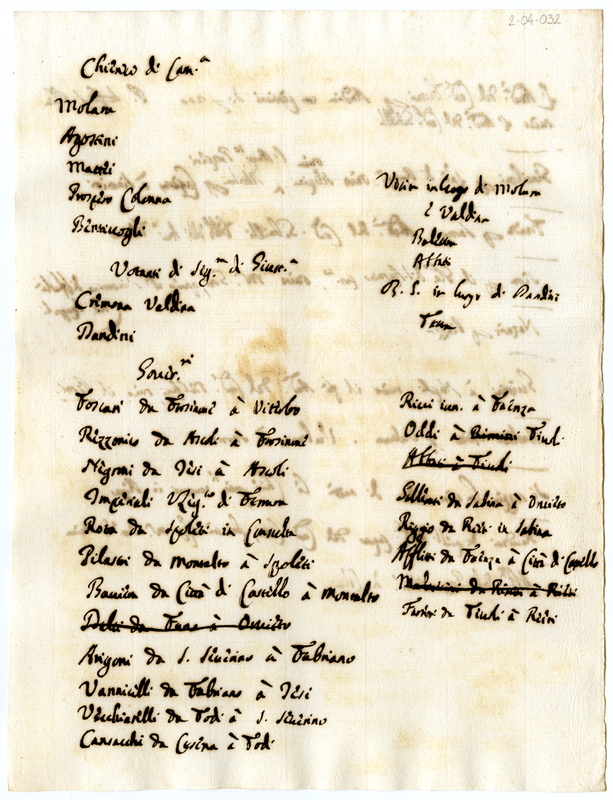 2-04-032
Chierico di Cam.a
Molara
Agostini
Mattei
Prospero Colonna
Bentivogli
Votanti di Sig.ra di Giust.a
Cremona Valdina
Bandini
Gover.ni
Foscari da Frosinone à Viterbo
Rezzonico da Ascoli à Frosinone
Negroni da Jesi à Ascoli
Imperiali di Fermo
Rota da Spoleti in Consulta
Pilastri da Montalto à Spoleti
da Città di Castello à Montalto
da Fano à Orvieto
Arigoni da S. Severino à Fabriano
Vannicelli da Fabriano à Jesi
Vecchiarelli da Todi à S. Severino
Cansacchi da Cesena à Todi
in luogo di Molara
e Valdina
R. S. in luogo di Bandini
Ricci à Faenza
Oddi à Rimini Tivoli
à Tivoli
da Sabina à Orvieto
Reggio da Rieti in Sabina
Afflitti da Faenza à Città di Castello
à Rieti
da Tivoli à Rieti